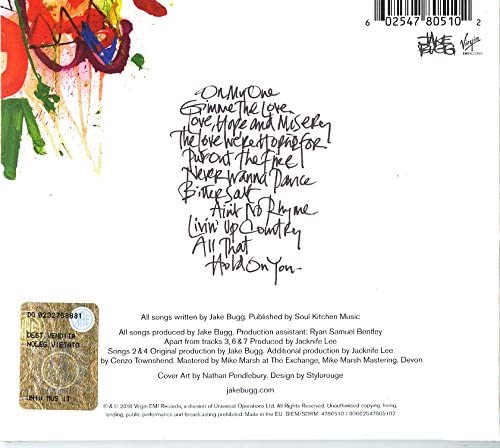 6 02547 80510 2
JAKE
BUGG
Virgin
On My One
Gimme The Love
Love, Hope and Misery
The Love We're Hoping For
Put Out The Fire
Never Wanna Dance
Bitter Salt
Ain't No Rhyme
Livin' Up Country
All That
Hold On You
All songs written by Jake Bugg. Published by Soul Kitchen Music
All songs produced by Jake Bugg. Production assistant: Ryan Samuel Bentley
Apart from tracks 3, 6 & 7 Produced by Jacknife Lee
Songs 2 & 4 Original production by Jake Bugg. Additional production by Jacknife Lee
by Cenzo Townshend. Mastered by Mike Marsh at The Exchange, Mike Marsh Mastering, Devon
Cover Art by Nathan Pendlebury. Design by Stylorouge
jakebugg.com
℗ & © 2016 Virgin EMI Records, a division of Universal Operations Ltd. All rights reserved. Unauthorised copying, hiring,
lending, public performance and broadcasting prohibited. Made in the EU. BIEM/SDRM 4780510 / 00602547805102
DG 0232758881
DEST. VENDITA
NOLEG. VIETATO
UNIV MUS IT